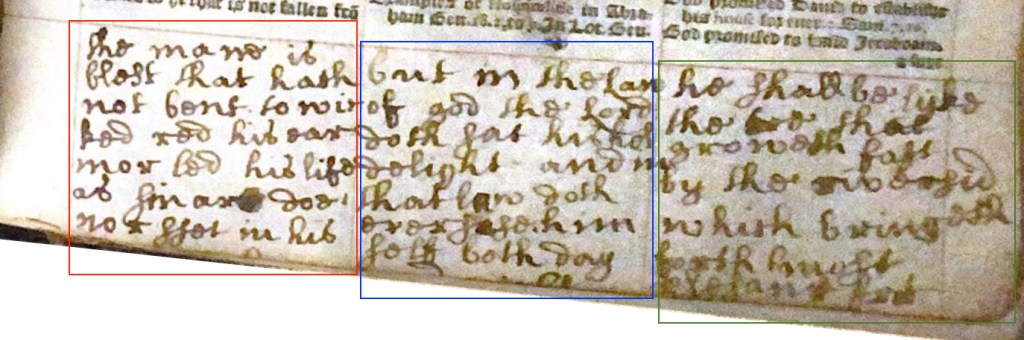 he that is not fallen frō
Hospitalitie in Abra-
ham Gen. In Lot Gen.
promised Dauid to establishe
his house for euer
God promised to Jeroboam
the mane is
blest that hath
not bent to wic
ked red his ear
nor led his life
as sinars doe
nor sset in his
but in the law
of god the lord
doth sat his hol
delight and in
that law doth
exersise him
self both day
he shall be lyke
the tre that
groweth fast
by the riversid
which bringeth
forth